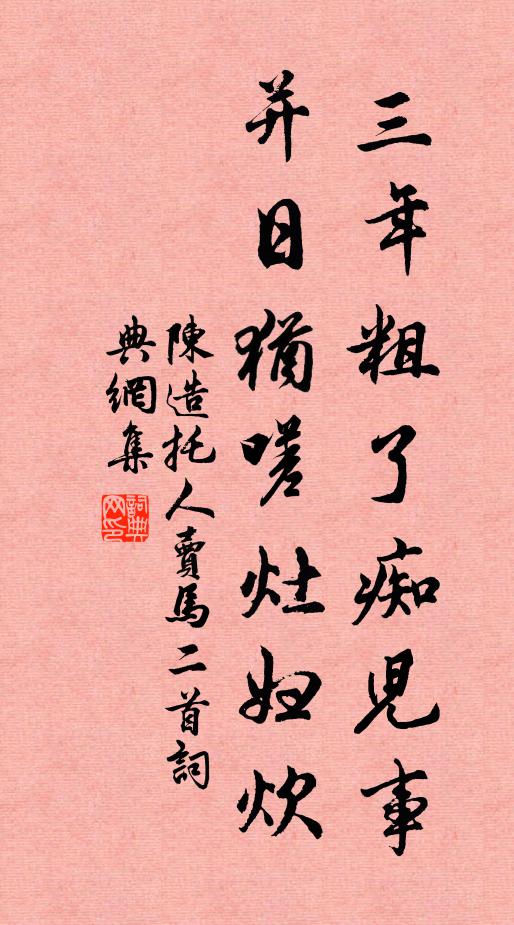 三年粗了痴児事
并日猶嗟灶妇炊
陳造托人賣馬二首詞
典網集
詞典网印